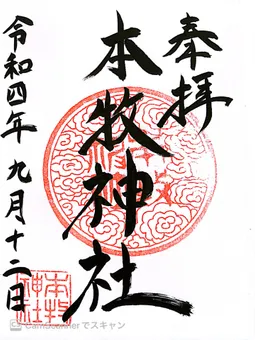 奉拝
本牧神社
令和四年九月十二日
本牧神社
CamScannerでスキャン